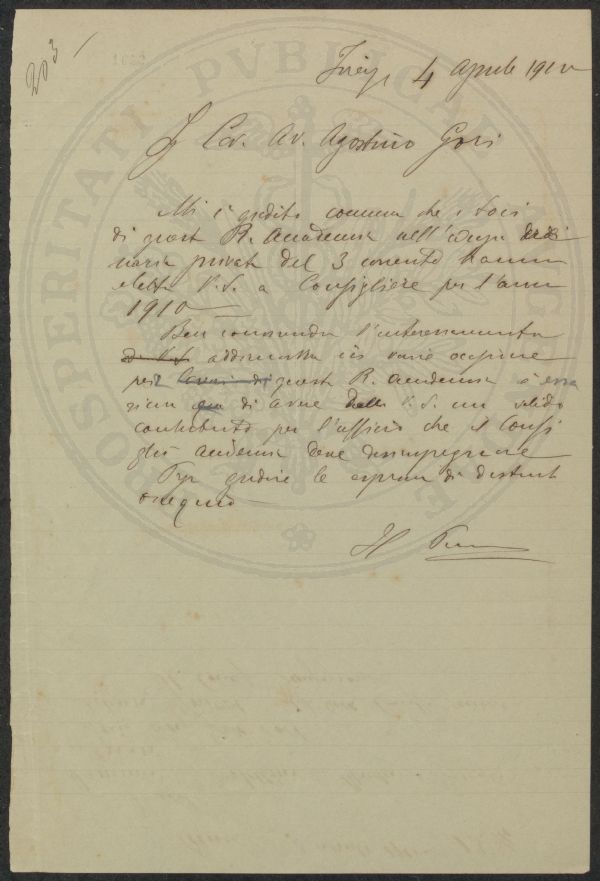 203
1022
PROSPERITATI PVBLICAE
Firenze 4 Aprile 1910
Ill Cav. Av. Agostino Gori
Mi è gradito comunicare che i Soci
di questa R. Accademia nell'
privata del 3 corrente hanno
eletto V.S. a Consigliere per l'anno
1910
Ben conoscendo l'interessamento
addimostrato in varie occasioni
per questa R. Accademia è essa
sicura di avere dalla V.S. un valido
contributo per l'ufficio che il Consi
glio Accademia deve disimpegnare
gradire le espressioni di distinto
ossequio
Il Pres